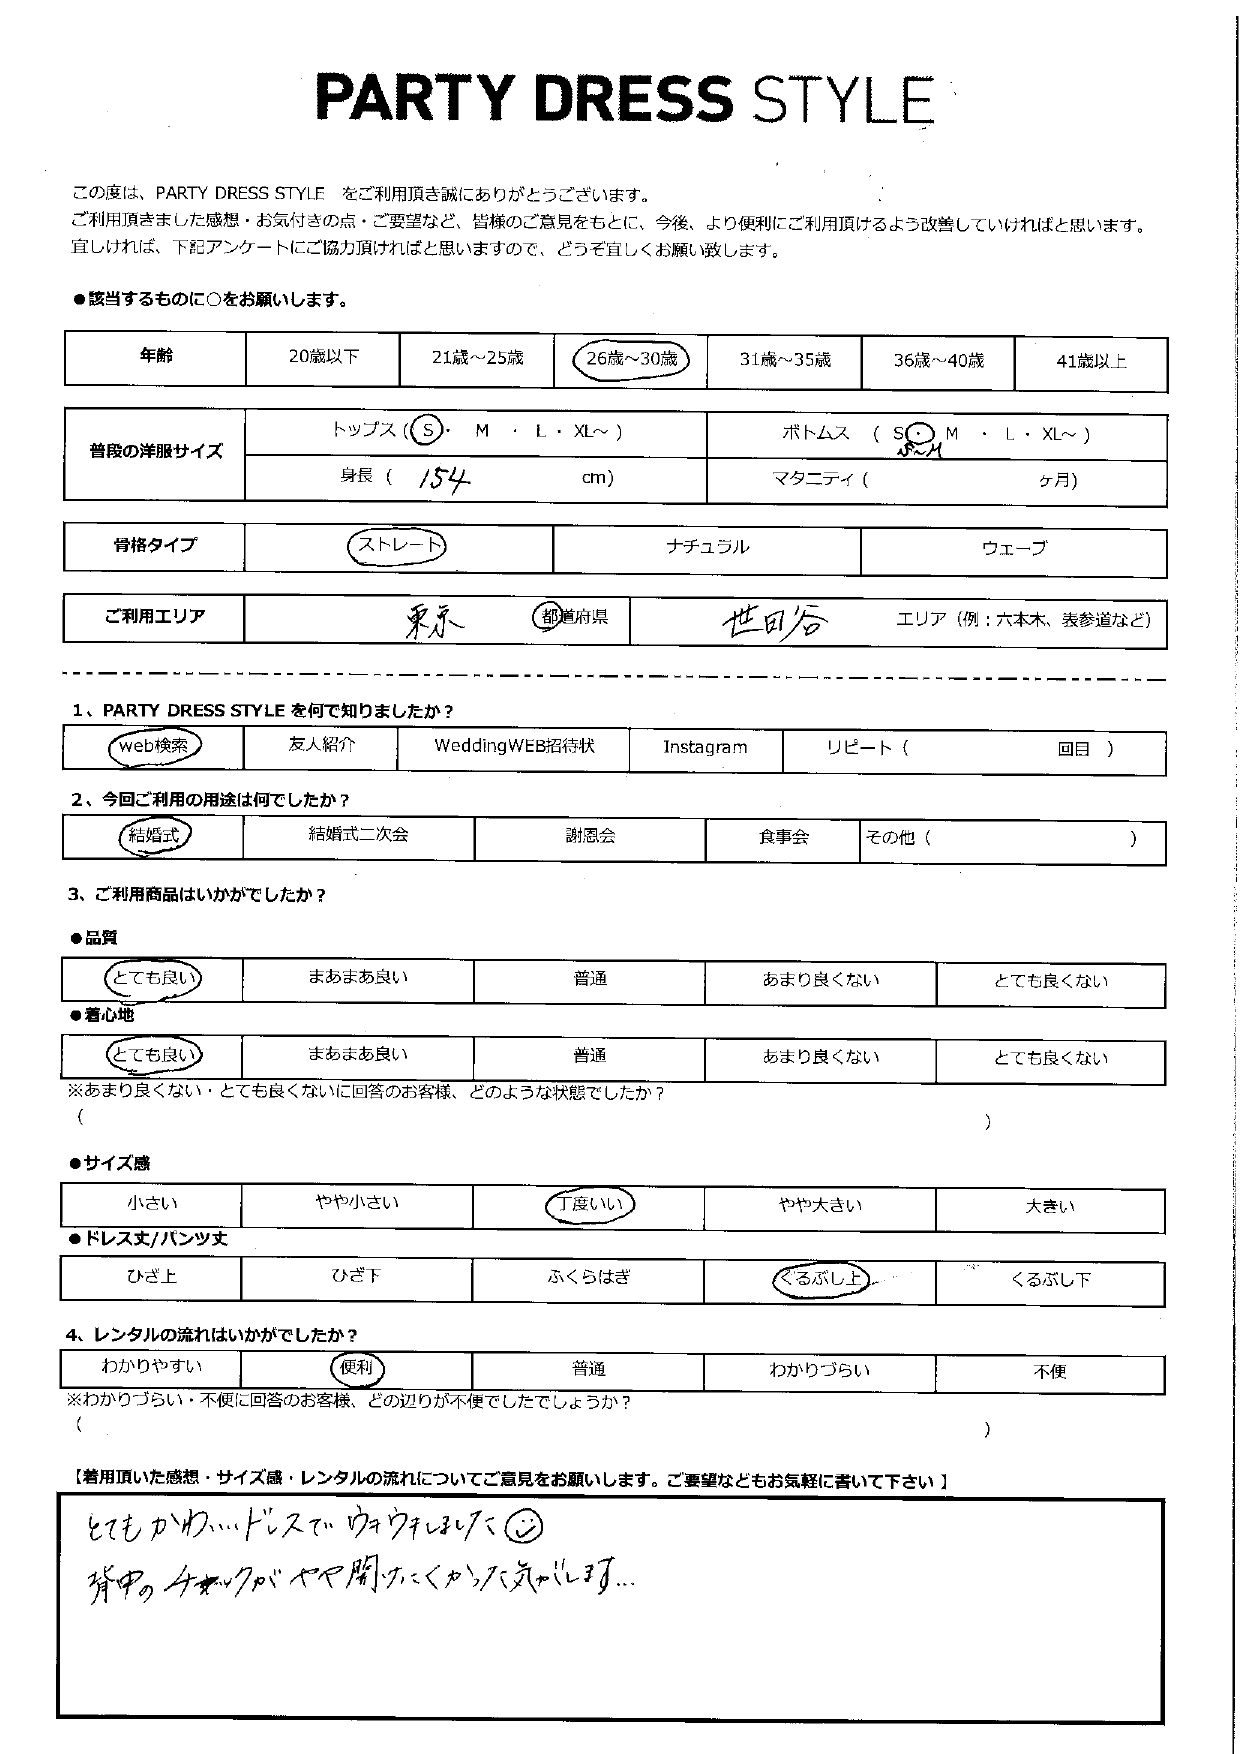 PARTY DRESS STYLE
この度は、PARTY DRESS STYLE をご利用頂き誠にありがとうございます。
ご利用頂きました感想・お気付きの点・ご要望など、皆様のご意見をもとに、今後、より便利にご利用頂けるよう改善していければと思います。
宜しければ、下記アンケートにご協力頂ければと思いますので、どうぞ宜しくお願い致します。
●該当するものに○をお願いします。
年齢 20歳以下 21歳～25歳 26歳～30歳 31歳～35歳 36歳～40歳 41歳以上
普段の洋服サイズ
トップス ( S ・ M ・ L ・ XL～ ) ボトムス ( S ・ M ・ L ・ XL～ )
S～M
身長 ( 154 cm) マタニティ ( ヶ月)
骨格タイプ ストレート ナチュラル ウェーブ
ご利用エリア 東京 都道府県 世田谷 エリア（例：六本木、表参道など）
1、PARTY DRESS STYLE を何で知りましたか？
web検索 友人紹介 WeddingWEB招待状 Instagram リピート ( 回目 )
2、今回ご利用の用途は何でしたか？
結婚式 結婚式二次会 謝恩会 食事会 その他 ( )
3、ご利用商品はいかがでしたか？
●品質
とても良い まあまあ良い 普通 あまり良くない とても良くない
●着心地
とても良い まあまあ良い 普通 あまり良くない とても良くない
※あまり良くない・とても良くないに回答のお客様、どのような状態でしたか？
( )
●サイズ感
小さい やや小さい 丁度いい やや大きい 大きい
●ドレス丈/パンツ丈
ひざ上 ひざ下 ふくらはぎ くるぶし上 くるぶし下
4、レンタルの流れはいかがでしたか？
わかりやすい 便利 普通 わかりづらい 不便
※わかりづらい・不便に回答のお客様、どの辺りが不便でしたでしょうか？
( )
【着用頂いた感想・サイズ感・レンタルの流れについてご意見をお願いします。ご要望などもお気軽に書いて下さい 】
とてもかわいいドレスで ウキウキしました
背中の チャックが やや開けにくかった気がします…